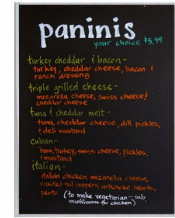 paninis
your choice $5.99
turkey cheddar & bacon-
turkey, cheddar cheese, bacon &
ranch dressing
triple grilled cheese-
mozzarella cheese, swiss cheese &
cheddar cheese
tuna & cheddar melt-
tuna, cheddar cheese, dill pickles,
& deli mustard
cuban-
ham, turkey, swiss cheese, pickles,
& mustard
italian-
italian chicken, mozzarella cheese,
roasted red peppers, artichoke hearts,
pesto (to make vegetarian-sub
mushrooms for chicken)